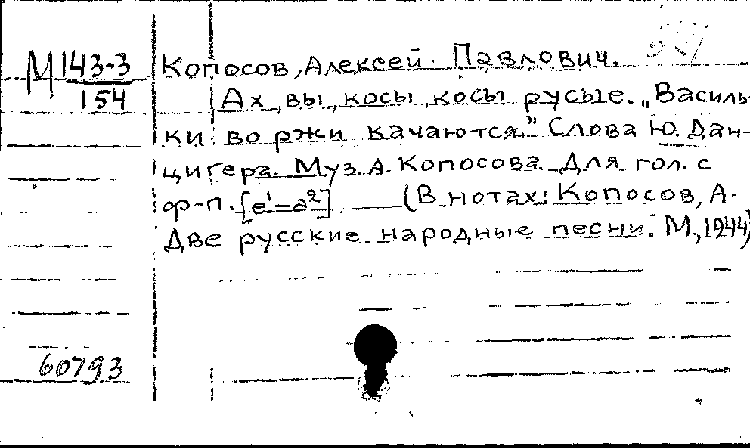 М 143-3
154
Копосов, Алексей Павлович.
Ах, вы, косы, косы русые. „Василь-
ки во ржи качаются". Слова Ю. Дан-
цигера. Муз. А. Копосова. Для гол. с
ф-п. [e¹-a²] (В нотах: Копосов, А.
Две русские народные песни. М., 1944)
60793